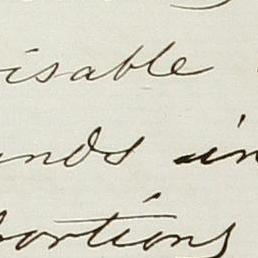 isable
nds in
ortions